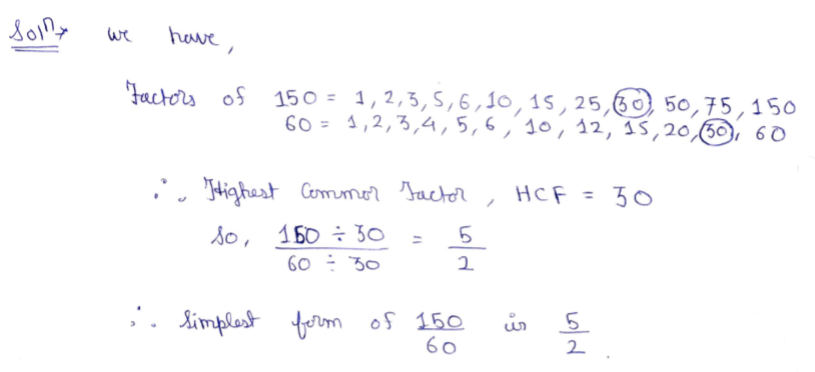 Solⁿ→ we have,
Factors of 150 = 1, 2, 3, 5, 6, 10, 15, 25, 30, 50, 75, 150
60 = 1, 2, 3, 4, 5, 6, 10, 12, 15, 20, 30, 60
∴ Highest Common Factor, HCF = 30
So, 150 ÷ 30 / 60 ÷ 30 = 5/2
∴ Simplest form of 150/60 is 5/2.